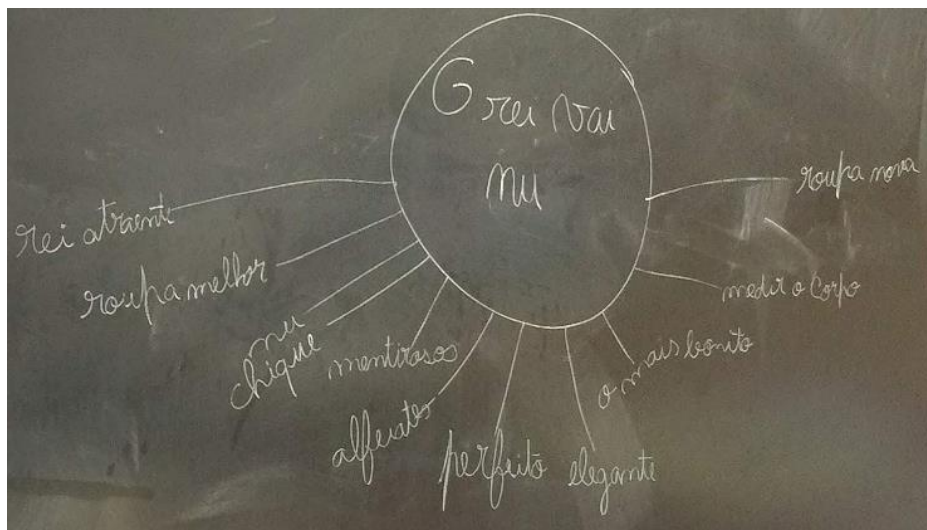 O rei vai
nu
rei atraente
roupa melhor
nu
chique
mentirosos
alfeiates
perfeito
elegante
o mais bonito
medir o corpo
roupa nova